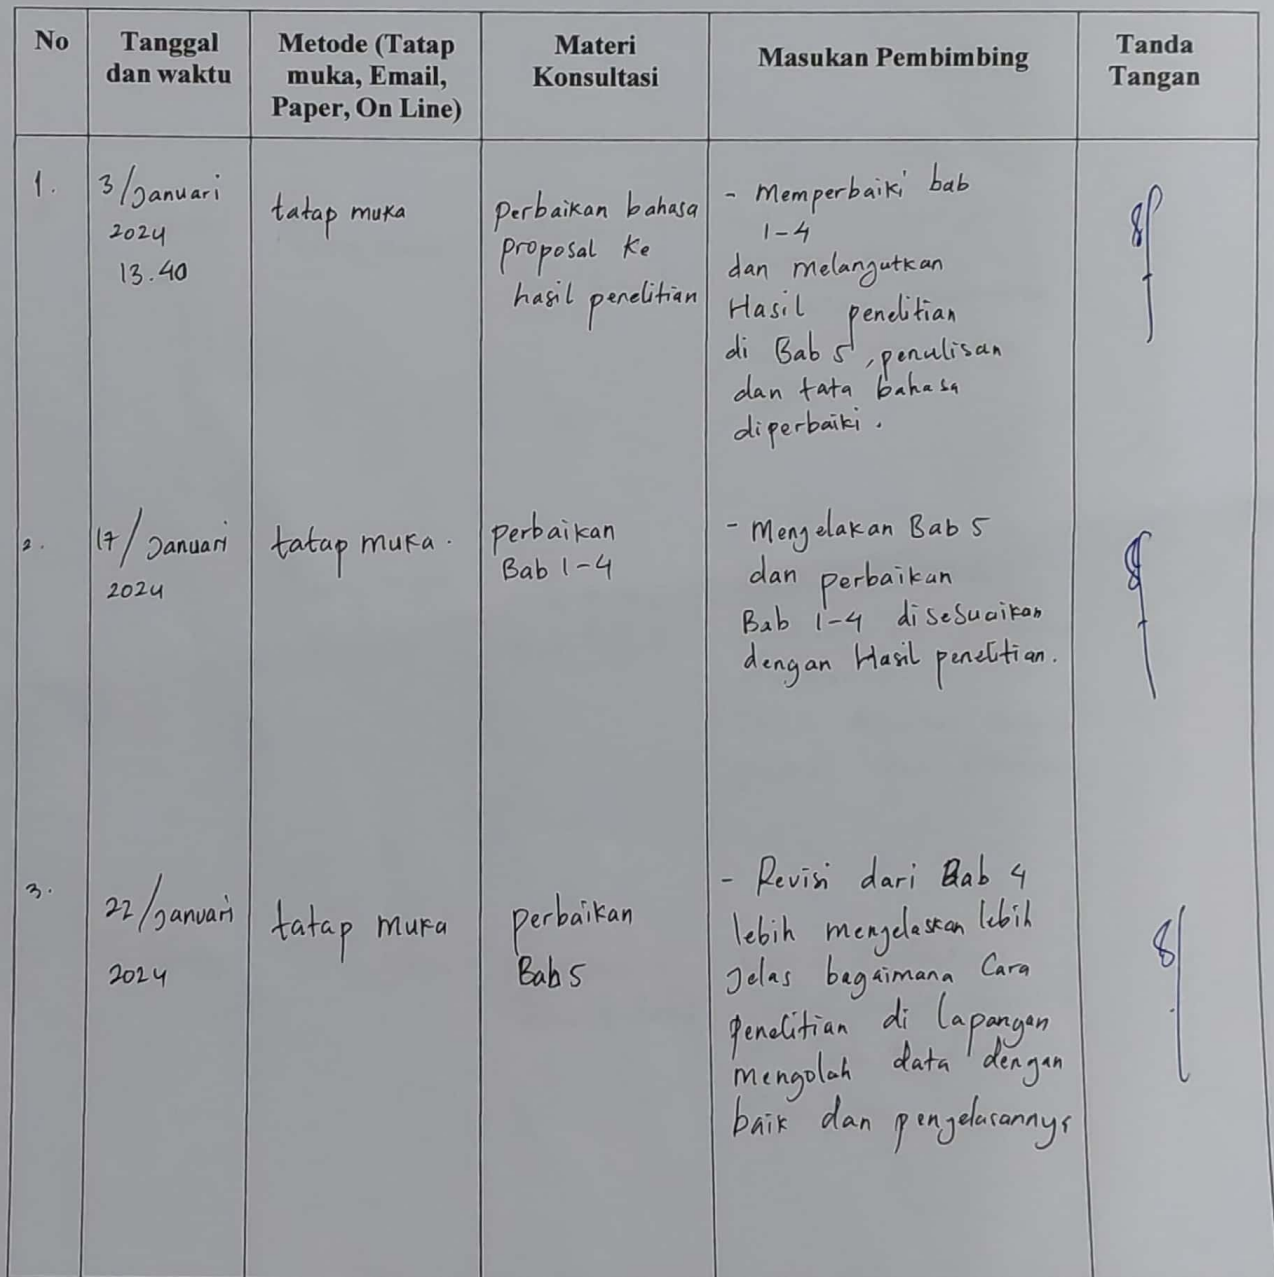 No
Tanggal
dan waktu
Metode (Tatap
muka, Email,
Paper, On Line)
Materi
Konsultasi
Masukan Pembimbing
Tanda
Tangan
1.
3/Januari
2024
13.40
tatap muka
perbaikan bahasa
proposal ke
hasil penelitian
- Memperbaiki bab
1-4
dan melangutkan
Hasil penelitian
di Bab 5, penulisan
dan tata bahasa
diperbaiki.
2.
17/Januari
2024
tatap muka.
perbaikan
Bab 1-4
- Mengelakan Bab 5
dan perbaikan
Bab 1-4 disesuaikan
dengan Hasil penelitian.
3.
22/Januari
2024
tatap muka
perbaikan
Bab 5
- Revisi dari Bab 4
lebih mengelaskan lebih
Jelas bagaimana Cara
penelitian di lapangan
mengolah data dengan
baik dan pengelasannya